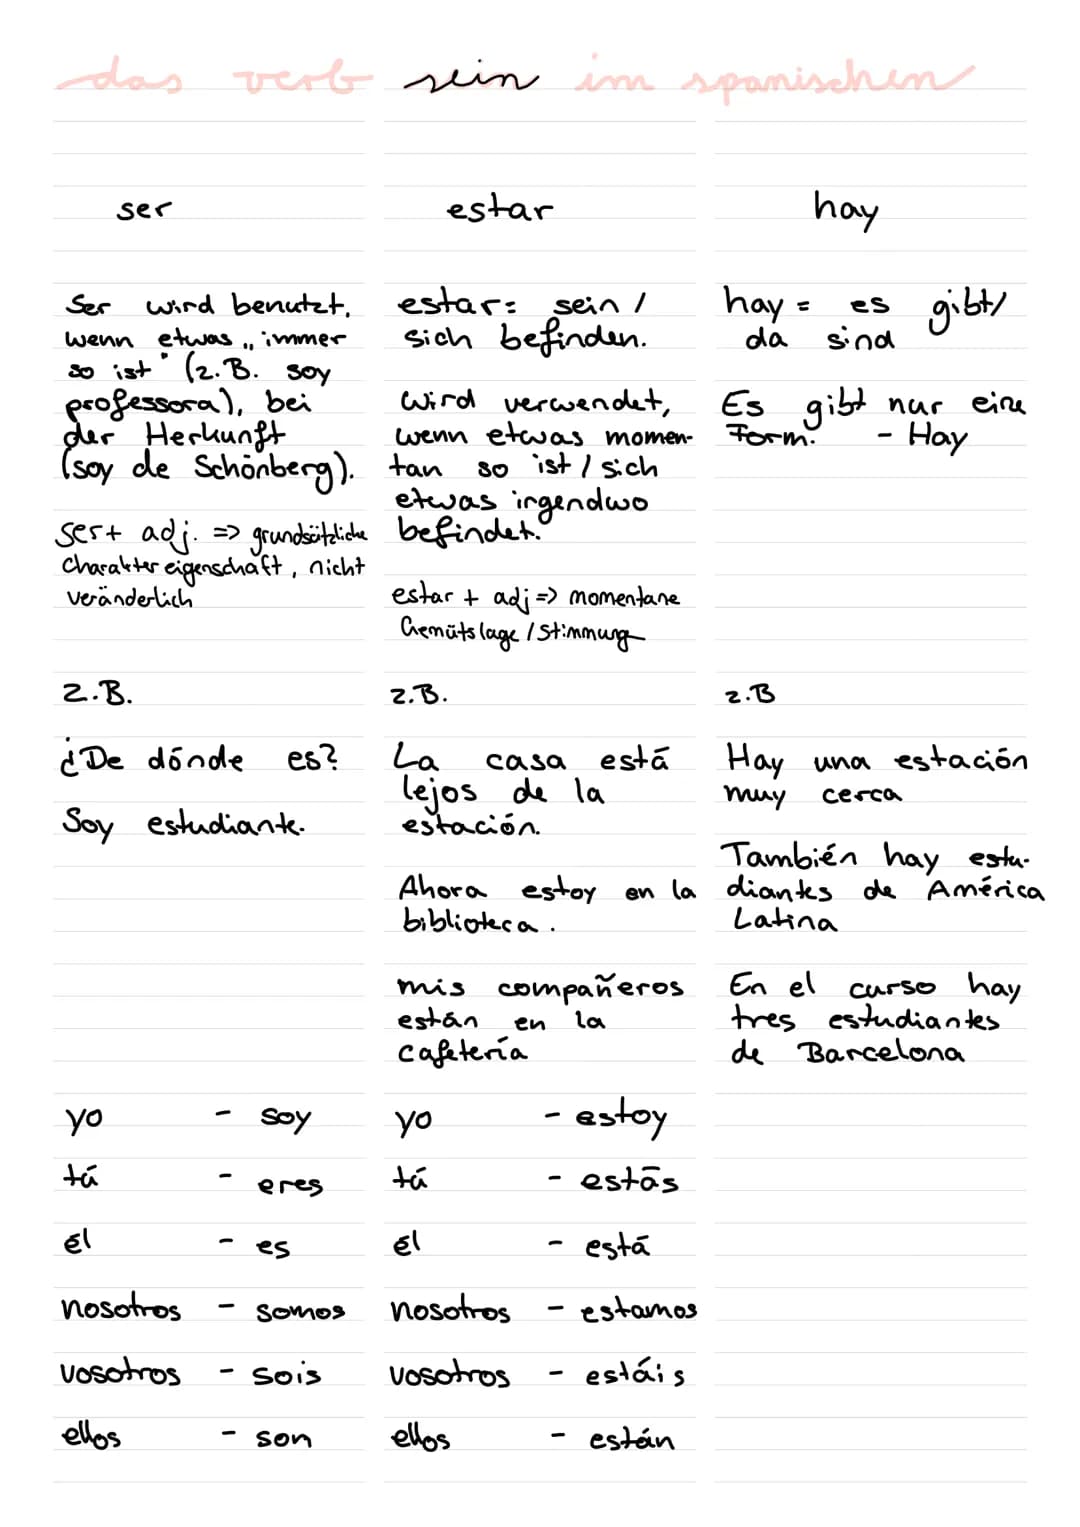 das verb sein im spanischen
ser
Ser wird benutzt,
wenn etwas „immer
so ist" (z.B. soy
professora), bei
der Herkunft
(soy de Schönberg).
ser+ adj. => grundsätzliche
Charaktereigenschaft, nicht
veränderlich
z.B.
¿De dónde es?
Soy estudiante.
yo - soy
tú - eres
él - es
nosotros - somos
vosotros - sois
ellos - son
estar
estar: sein /
sich befinden.
Wird verwendet,
wenn etwas momen-
tan so ist / sich
etwas irgendwo
befindet.
estar + adj => momentane
Gemütslage / Stimmung
z.B.
La casa está
lejos de la
estación.
Ahora estoy en la
biblioteca.
mis compañeros
están en la
cafetería
yo - estoy
tú - estás
él - está
nosotros - estamos
vosotros - estáis
ellos - están
hay
hay = es gibt/
da sind
Es gibt nur eine
Form. - Hay
z.B
Hay una estación
muy cerca
También hay estu-
diantes de América
Latina
En el curso hay
tres estudiantes
de Barcelona